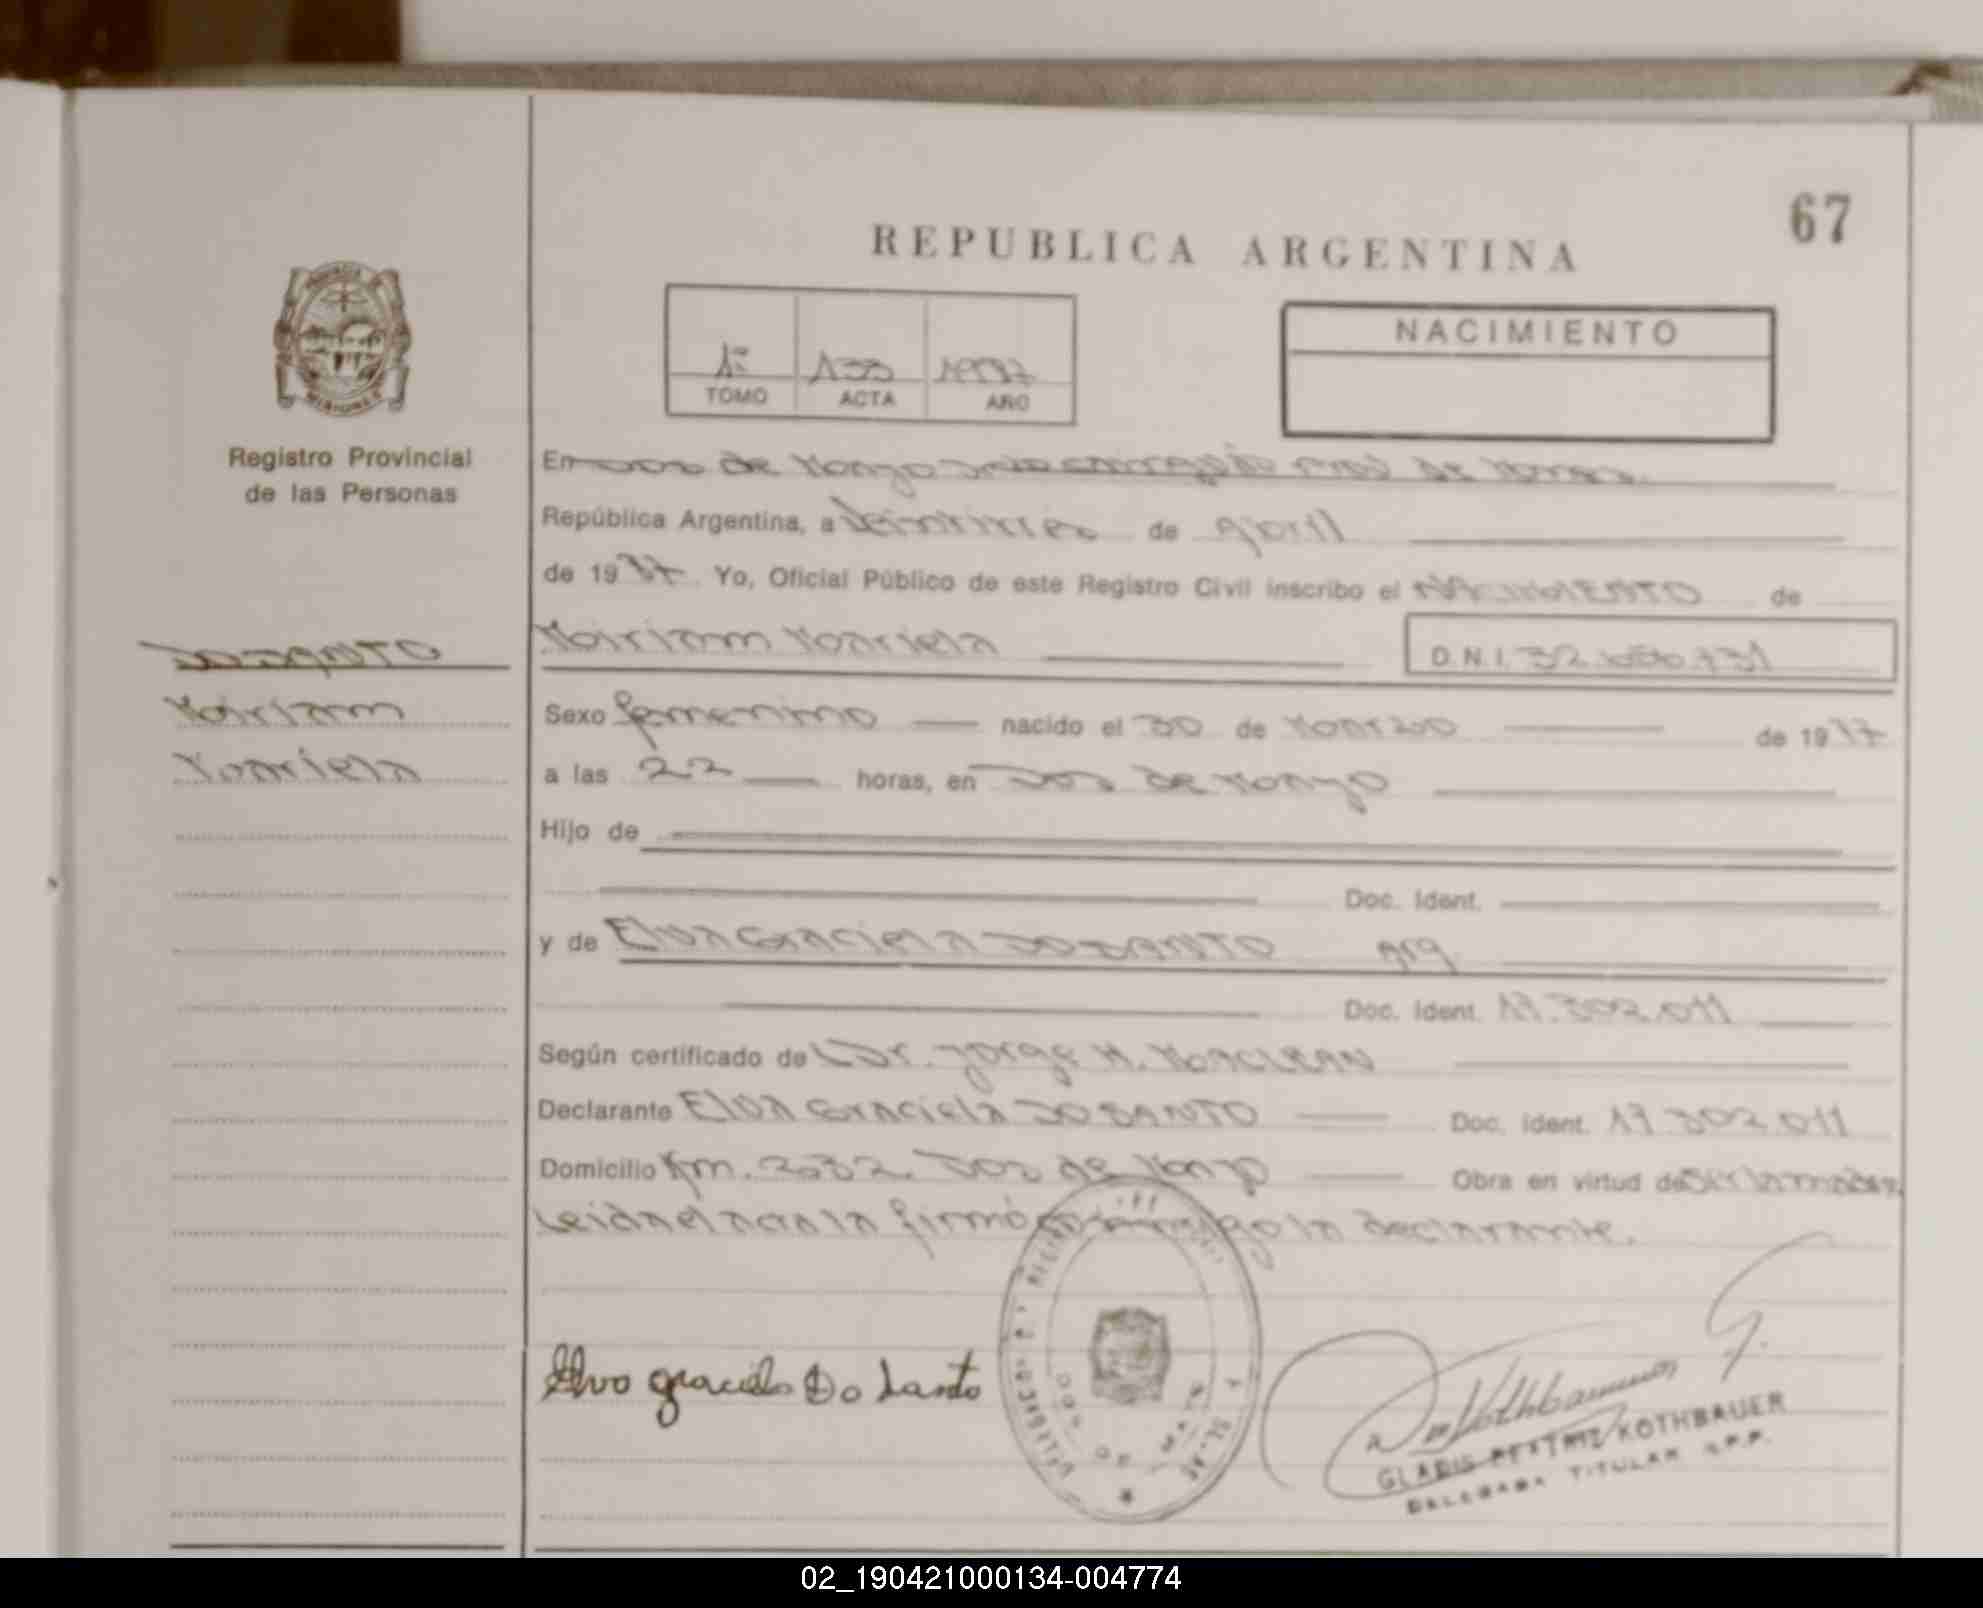 67
REPUBLICA ARGENTINA
PROVINCIA DE
MISIONES
Registro Provincial
de las Personas
1º 133
TOMO ACTA AÑO
NACIMIENTO
En Dos de Mayo
República Argentina, a de abril
de 19 Yo, Oficial Público de este Registro Civil inscribo el NACIMIENTO de
DO SANTO
Miriam
Mariela
Miriam Mariela
D.N.I. 32.
Sexo femenino nacido el 30 de Marzo de 19
a las 22 horas, en Dos de Mayo
Hijo de
Doc. Ident.
y de Elva Graciela DO SANTO Arg.
Doc. Ident. 17.302.011
Según certificado de Dr. Jorge H. MACLEAN
Declarante Elva Graciela DO SANTO Doc. ident. 17.302.011
Domicilio Km. Dos de Mayo Obra en virtud de
Leida el acta la firmó conmigo la declarante.
Elva Graciela Do Santo
DOS DE MAYO
GLADIS BEATRIZ KOTHBAUER
DELEGADA TITULAR R.P.P.
02_190421000134-004774